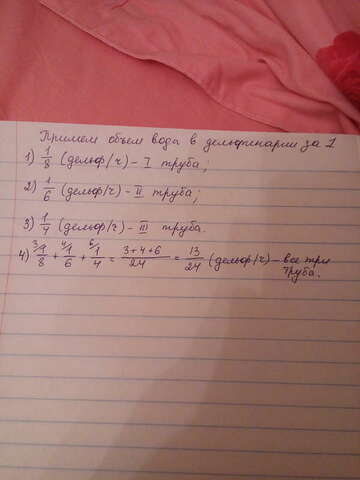 Примем объем воды в дельфинарии за 1
1) 1/8 (дельф/ч) - I труба;
2) 1/6 (дельф/ч) - II труба;
3) 1/4 (дельф/ч) - III труба.
4) ³⁾1/8 + ⁴⁾1/6 + ⁶⁾1/4 = 3+4+6/24 = 13/24 (дельф/ч) - все три
труба.